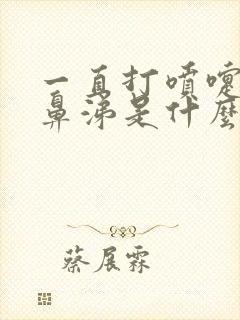 一直打噴嚏
鼻涕是什麼
蔡展霖